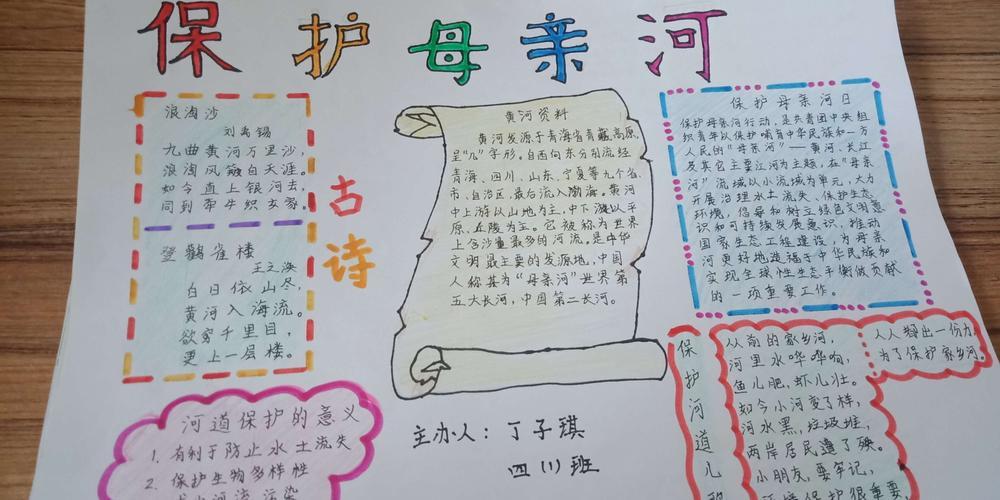 保护母亲河
浪淘沙
刘禹锡
九曲黄河万里沙,
浪淘风簸自天涯。
如今直上银河去,
同到牵牛织女家。
登鹳雀楼
王之涣
白日依山尽,
黄河入海流。
欲穷千里目,
更上一层楼。
古诗
河道保护的意义
1. 有利于防止水土流失
2. 保护生物多样性
黄河资料
黄河发源于青海省青藏高原,
呈“几”字形。自西向东分别流经
青海、四川、山东、宁夏等九个省、
市、自治区,最后流入渤海。黄河
中上游以山地为主,中下游以平
原、丘陵为主。它被称为世界
上含沙量最多的河流,是中华
文明最主要的发源地,中国
人称其为“母亲河”世界第
五大长河,中国第二长河。
主办人:丁子琪
四(1)班
保护母亲河日
保护母亲河行动,是共青团中央组
织青年以保护哺育中华民族和一方
人民的“母亲河”——黄河、长江
及其它主要江河为主题,在“母亲
河”流域以小流域为单元,大力
开展治理水土流失、保护生态
环境,倡导和树立绿色文明意
识和可持续发展意识,推动
国家生态工程建设,为母亲
河更好地造福于中华民族和
实现全球性生态平衡做贡献
的一项重要工作。
保护河道儿歌
从前的家乡河,
河里水哗哗响,
鱼儿肥,虾儿壮。
如今小河变了样,
河水黑,垃圾堆,
两岸居民遭了殃。
小朋友,要牢记,
环境保护很重要
人人
出一份力,
为了保护家乡河。